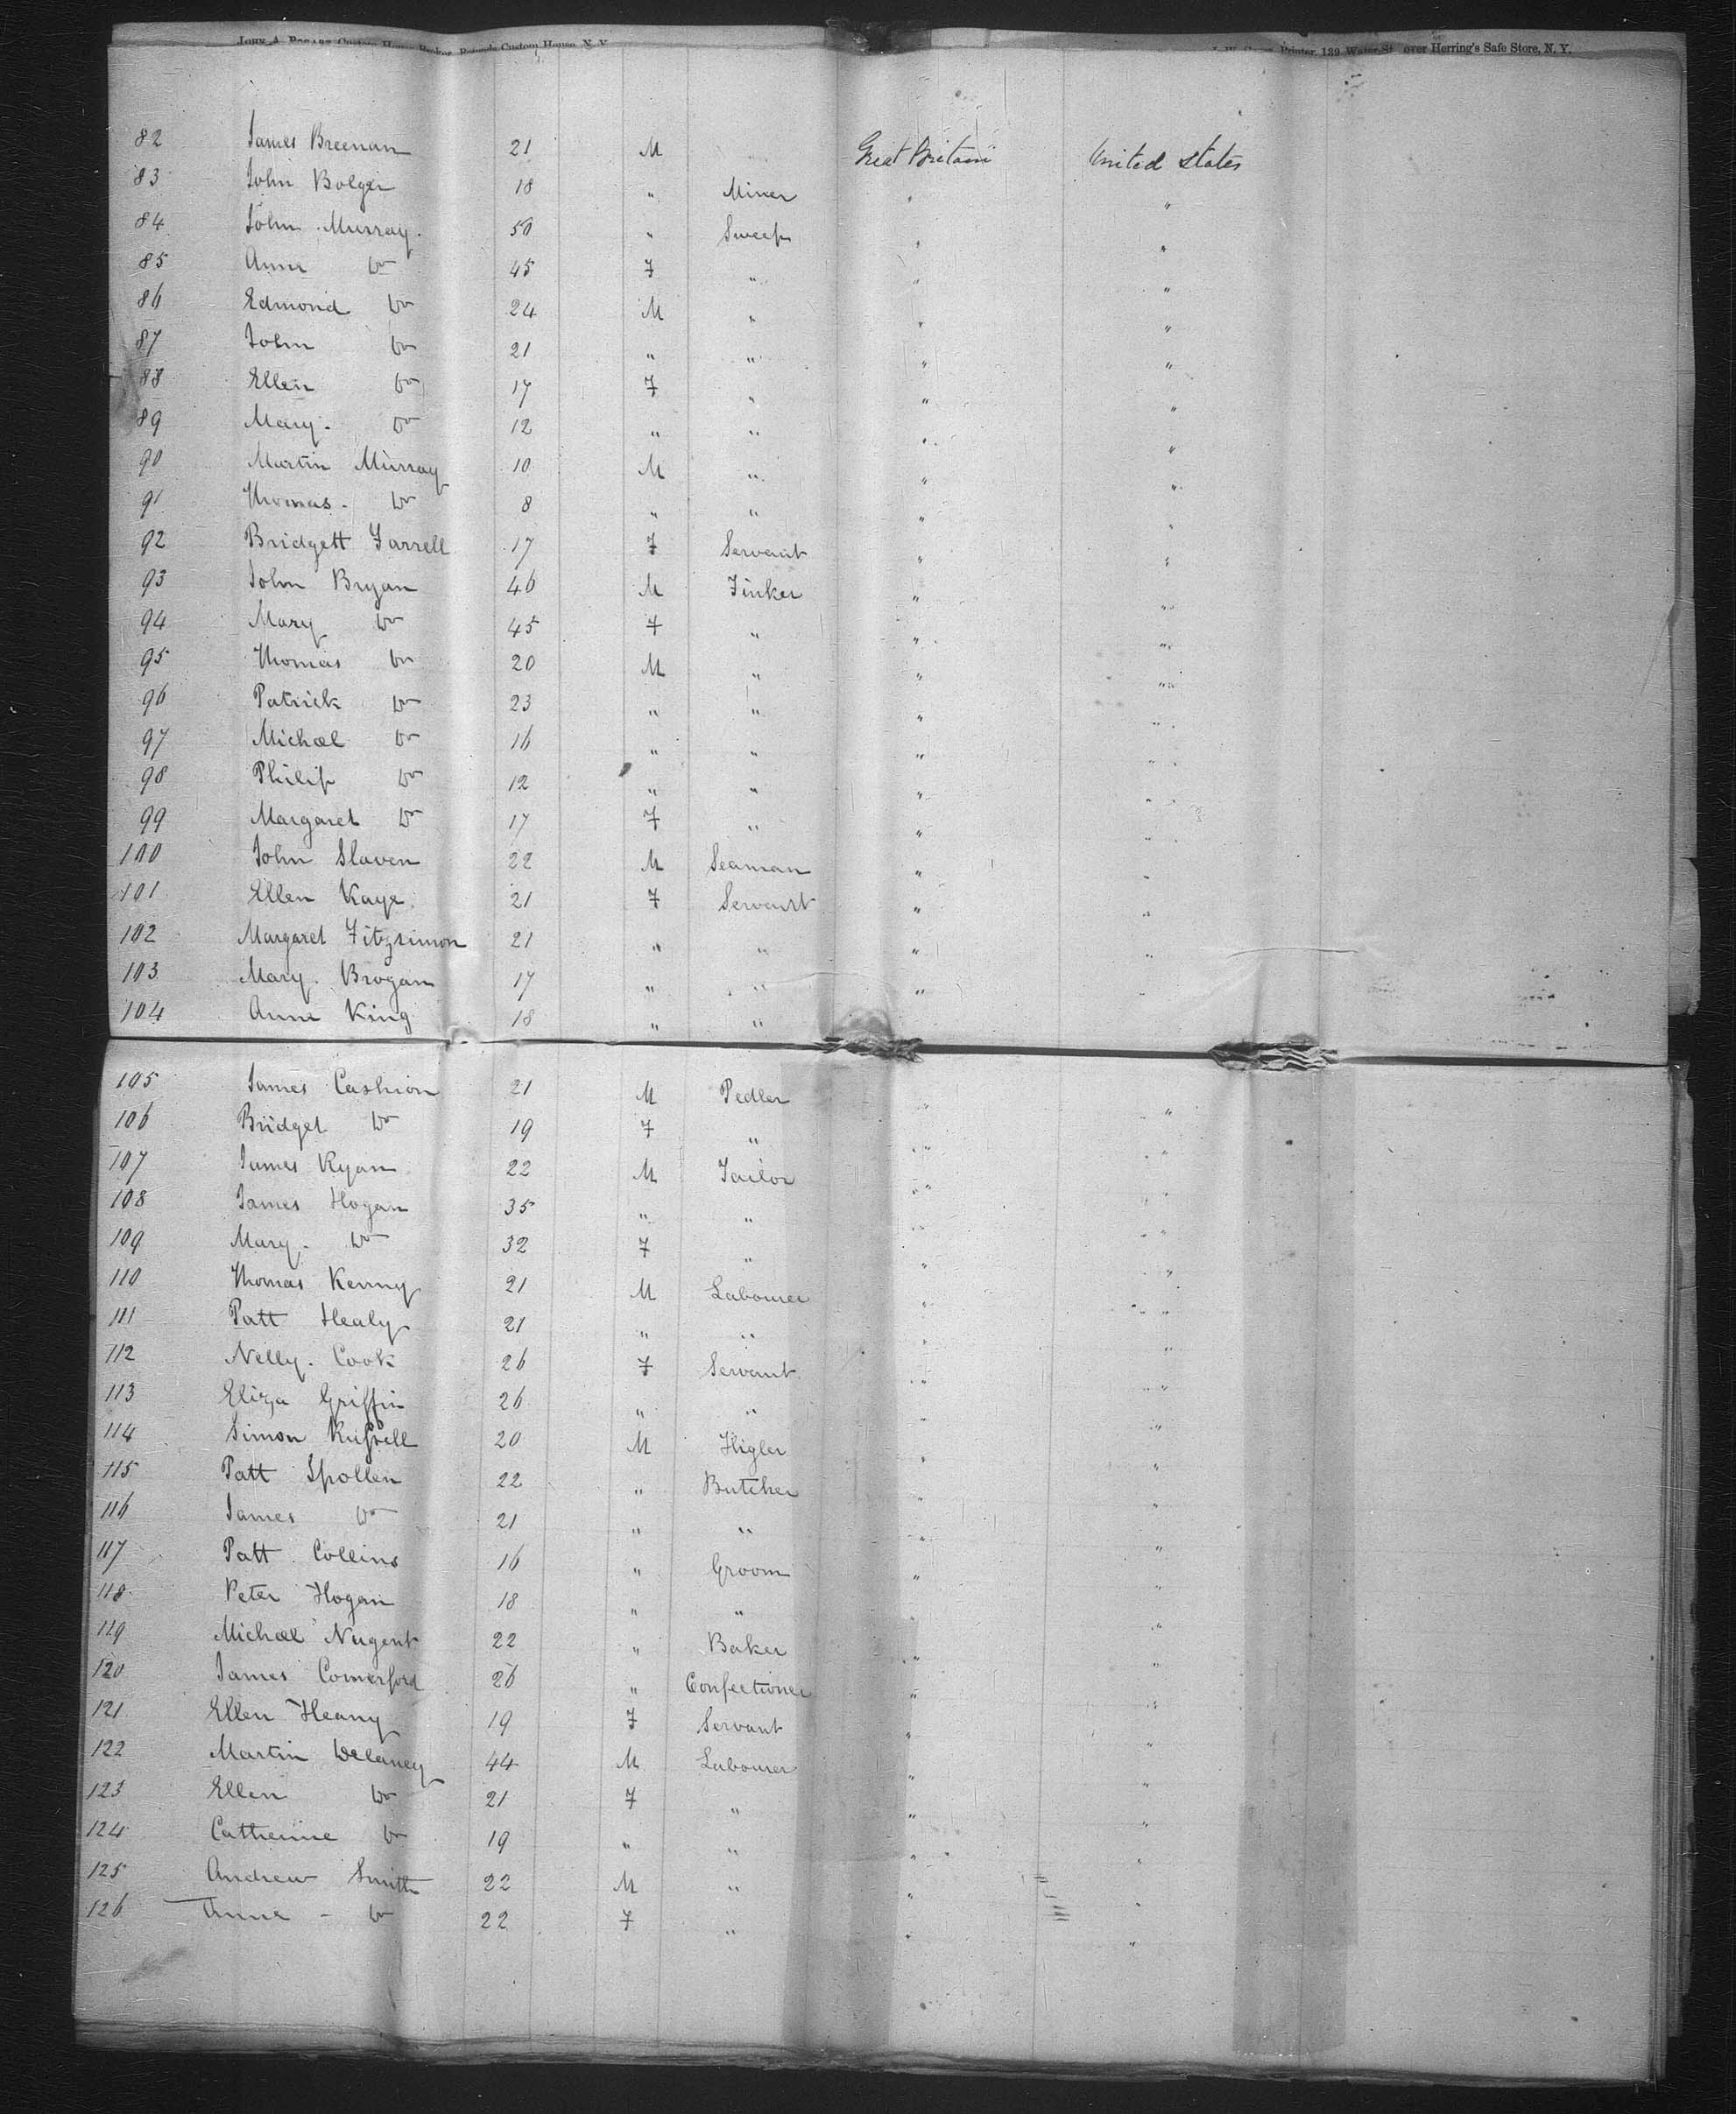 Custom House Broker, Refunds Custom House, N. Y. Printer, 139 Water St. over Herring's Safe Store, N. Y.
82 James Breenan 21 M Great Britain United States
83 John Bolger 18 " Miner " "
84 John Murray. 50 " Sweep " "
85 Anne Do 45 F " " "
86 Edmond Do 24 M " " "
87 John Do 21 " " " "
88 Ellen Do 17 F " " "
89 Mary. Do 12 " " " "
90 Martin Murray 10 M " " "
91 Thomas. Do 8 " " " "
92 Bridgett Farrell 17 F Servant " "
93 John Bryan 46 M Tinker " "
94 Mary Do 45 F " " "
95 Thomas Do 20 M " " "
96 Patrick Do 23 " " " "
97 Michael Do 16 " " " "
98 Philip Do 12 " " " "
99 Margaret Do 17 F " " "
100 John Slaven 22 M Seaman " "
101 Ellen Kaye 21 F Servant " "
102 Margaret Fitzsimon 21 " " " "
103 Mary. Brogan 17 " " " "
104 Anne King 18 " "
105 James Cashion 21 M Pedler " "
106 Bridget Do 19 F " " "
107 James Ryan 22 M Tailor " "
108 James Hogan 35 " " " "
109 Mary. Do 32 F " " "
110 Thomas Kenny 21 M Labourer " "
111 Patt Healy 21 " " " "
112 Nelly. Cook 26 F Servant " "
113 Eliza Griffin 26 " " " "
114 Simon Russell 20 M Higler " "
115 Patt Spollen 22 " Butcher " "
116 James Do 21 " " " "
117 Patt Collins 16 " Groom " "
118 Peter Hogan 18 " " " "
119 Michael Nugent 22 " Baker " "
120 James Comerford 26 " Confectioner " "
121 Ellen Heany 19 F Servant " "
122 Martin Delaney 44 M Labourer " "
123 Ellen Do 21 F " " "
124 Catherine Do 19 " " " "
125 Andrew Smith 22 M " " "
126 Anne - Do 22 F " " "